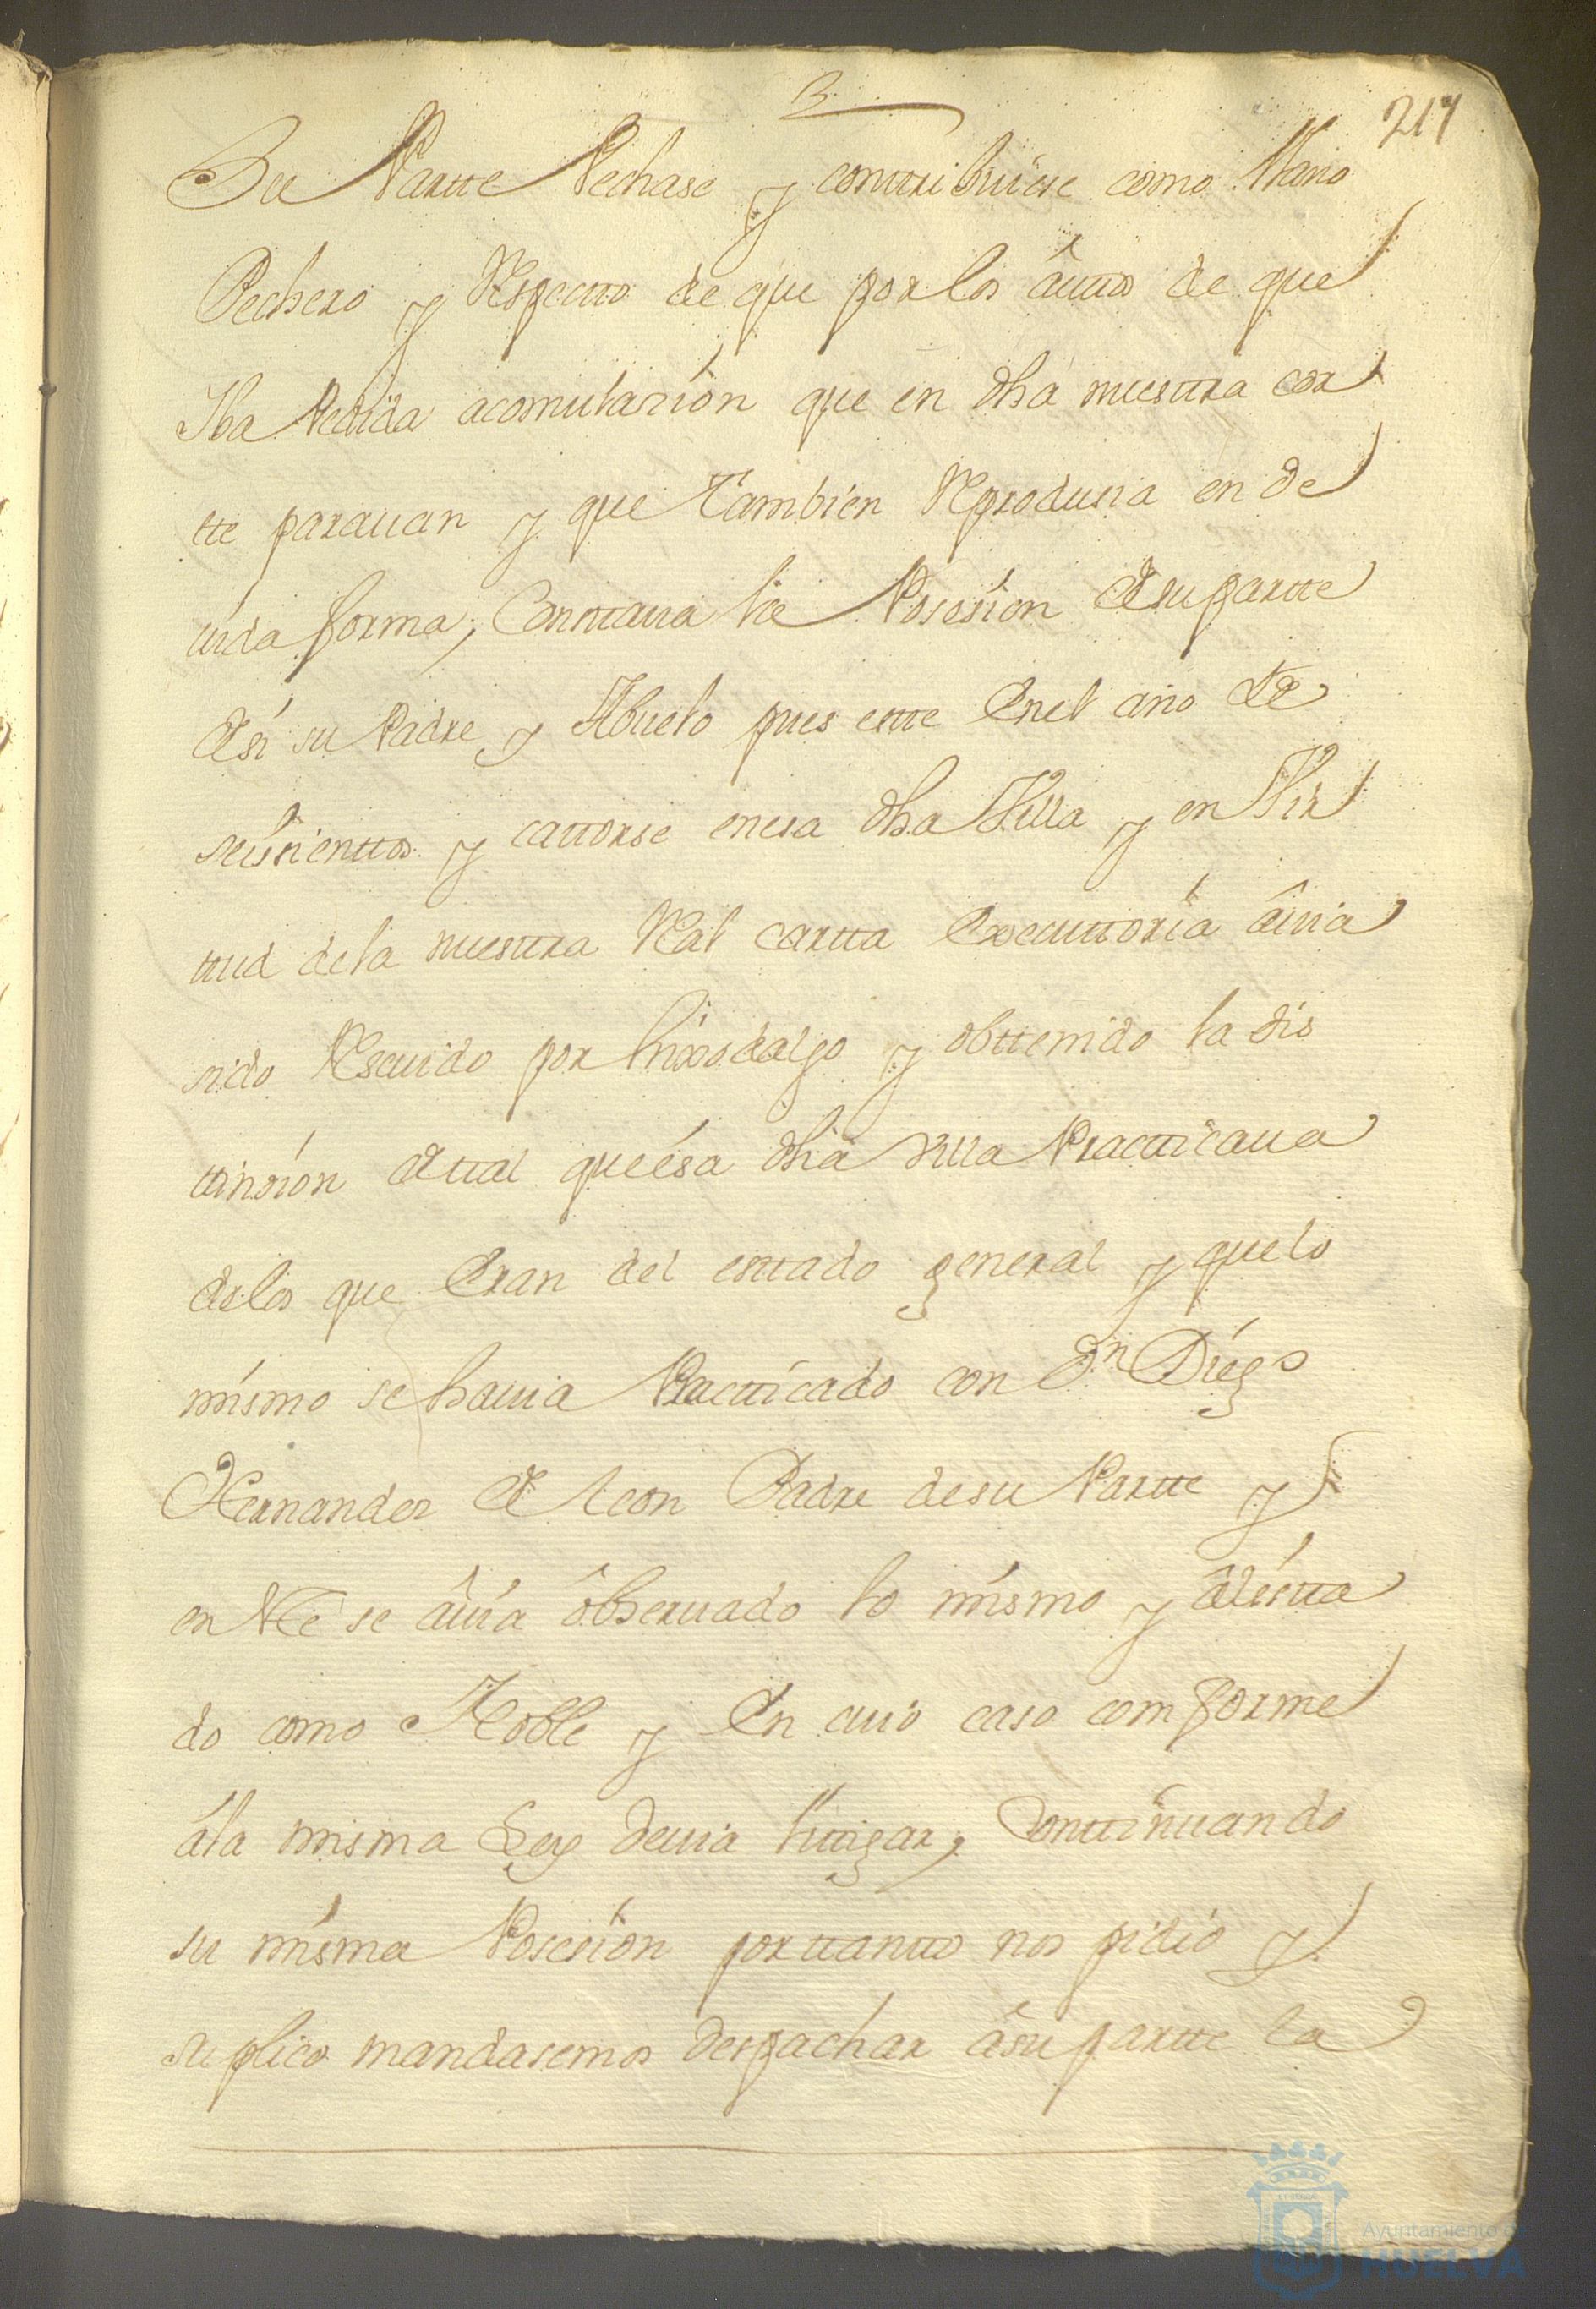 217
Su Partte Pechase y conttribuiese como llano
Pechero y Respecto de que por los âuttos de que
Iba Pedida acomulazion que en dha nuesttra cor
tte parauan y que tambien Reproducia en de
uida forma, Conttaua la Posesion de su partte
de si su Padre y Abuelo pues estte en el año de
seisienttos y cattorse en esa dha Villa y en Vir
ttud de la nuesttra Real cartta executtoria âuia
sido Reseuido por hixosdalgo y obttenido la dis
ttinsion attual que esa dha Villa Practticaua
de los que eran del esttado general y que lo
mismo se hauia Practticado con Dn Diego
Hernandez de Leon Padre de su Partte y
en Rte se âuia ôbseruado lo mismo y âl estta
do como Noble y en cuio caso comforme
á la misma Ley deuia littigar, conttinuando
su misma Poscesion por ttantto nos pidio y
suplico mandasemos despachar â su partte la
Ayuntamiento de
HUELVA